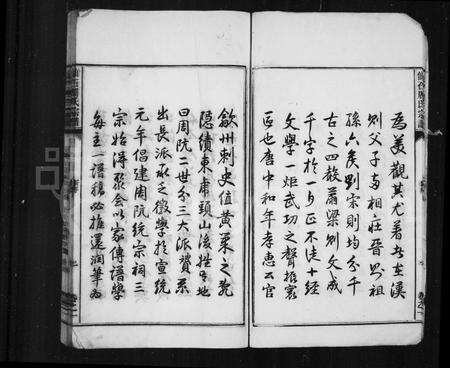 為美觀其尤著者在漢
則父子与相在晉則祖
孫六侯劉宋則均分千
古之四聲蕭梁則文成
千字於一夕匪不徒十經
文學一炬武功之聲推寰
區也唐中和年孝惠公官
歙州刺史值黃巢之亂
隱績東廟頭山後姓其地
曰周阬二世分三大派贊系
出長派承之徽學於宣統
元年倡建周阬統宗祠三
宗始得聚会以家傳譜學
每主一譜稿必推還潤筆為